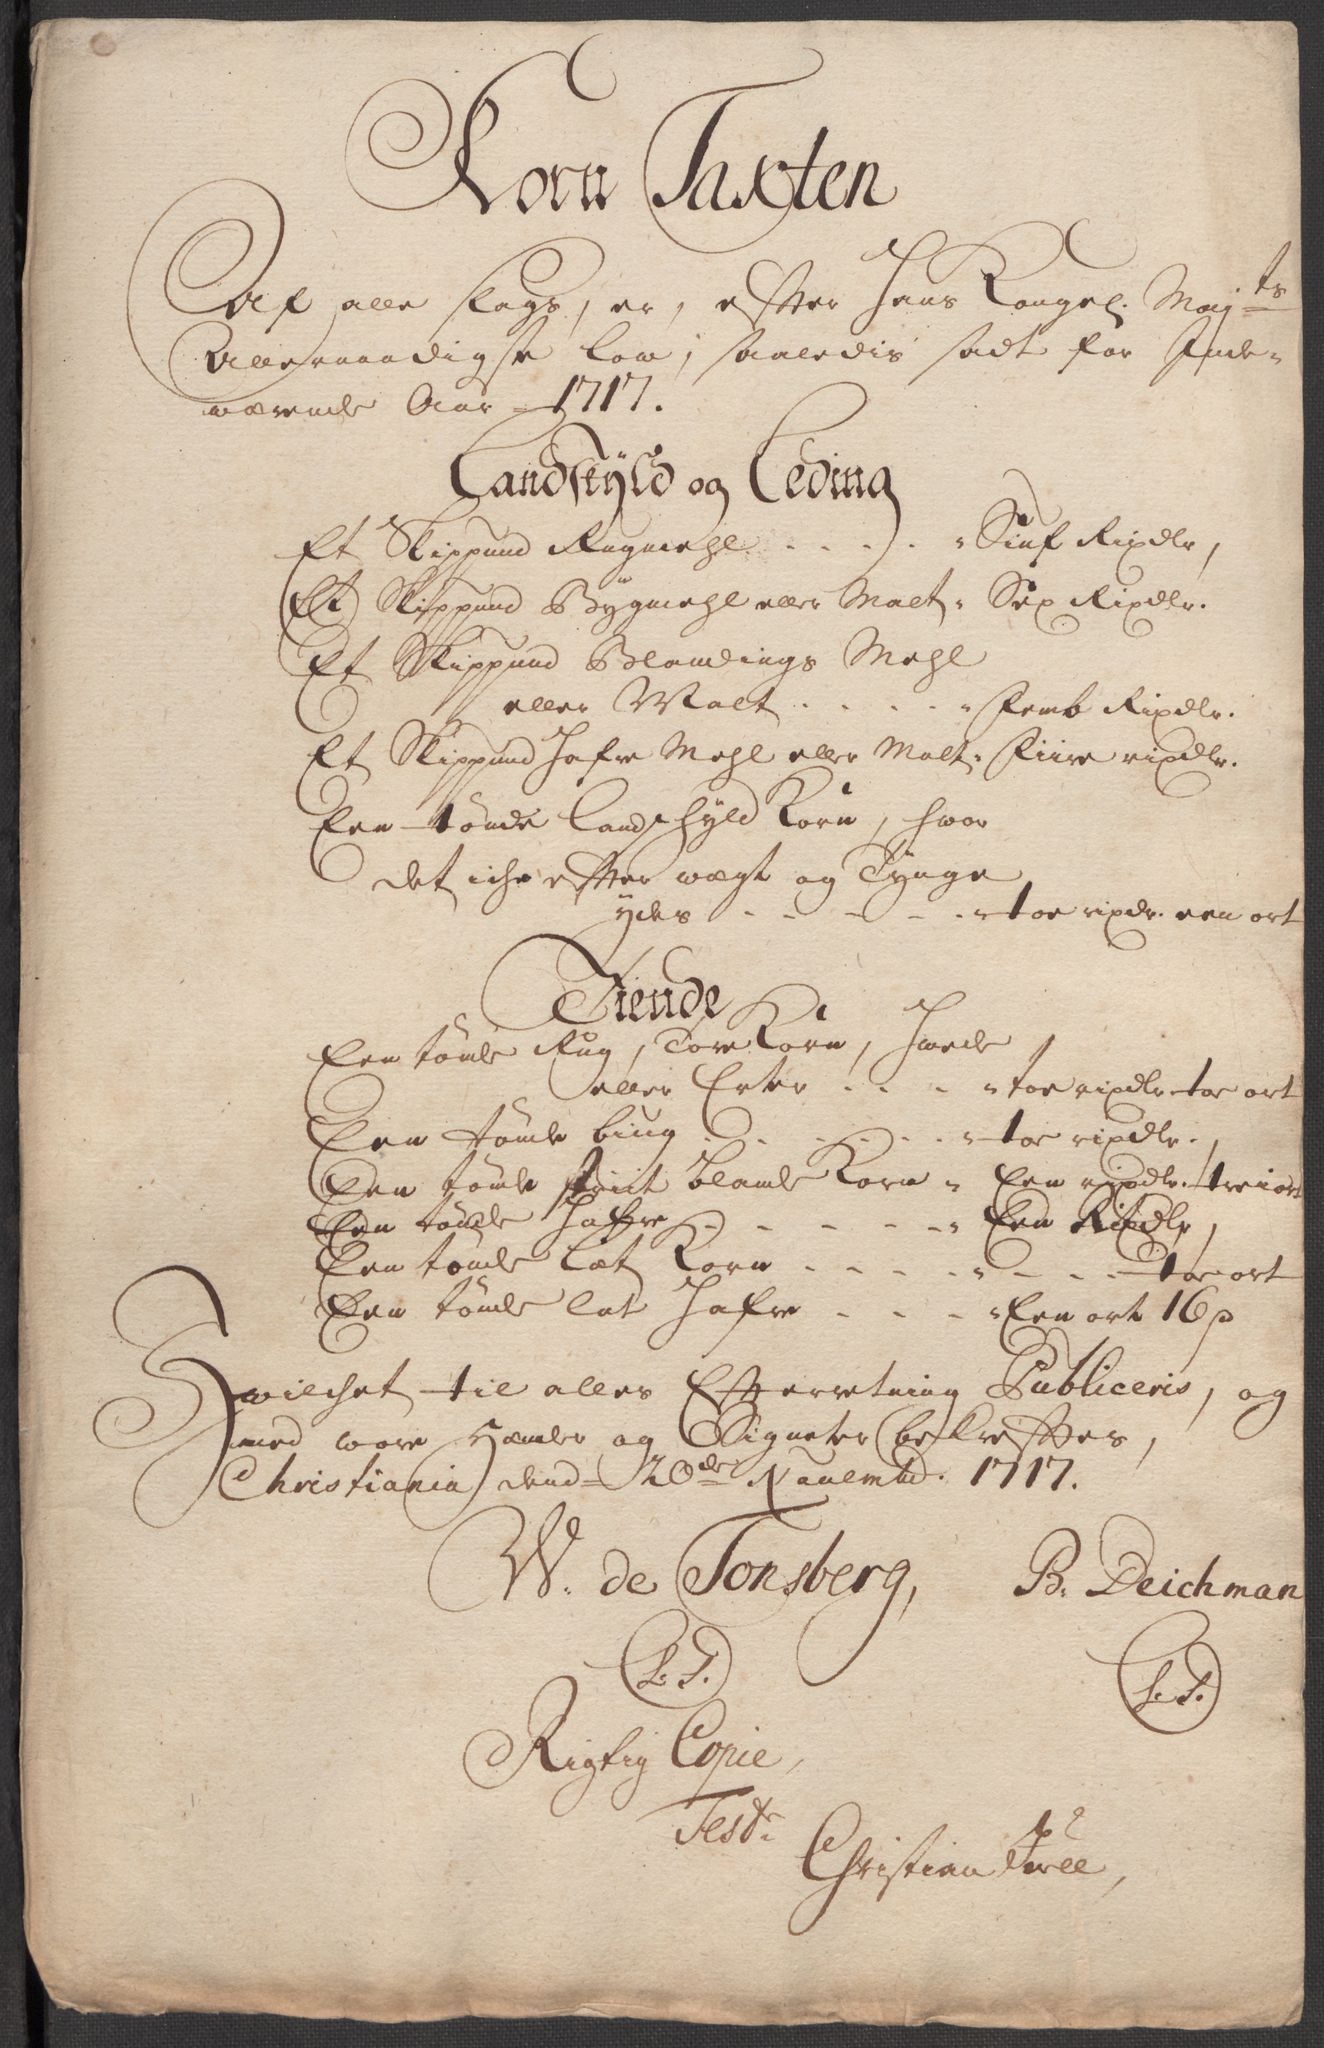 Korn Taxten
Af alle slags, er, efter Hans Kongel. Maj<sup>ts</sup>
Allernaadigste Low, saaledis sadt for Inde-
wærende Aar 1717.
Landskyld og Leding
Et Skippund Rugmehl . . . . Siuf Rixdlr,
Et Skippund Bÿgmehl eller Malt. Sex Rixdlr.
Et Skippund Blandings Mehl
eller Malt . . . . . Femb Rixdlr.
Et Skippund Hafre Mehl eller Malt. Fiire rixdlr.
Een tönde Landschyld Korn, hvor
det iche efter wægt og Tÿnge
ÿdes - - - - - toe rixdr. een ort
Tiende
Een tönde Rug, Tore Korn, Hvede
eller Erter . . . toe rixdlr toe ort
Een tönde biug . . . . . . toe rixdlr.,
Een tönde friit blande Korn - Een rixdlr. trei ort
Een tönde Hafre - - - - - Een Rixdlr,
Een tönde Læt Korn - - - - - - - toe ort
Een tönde let Hafre - - - Een ort 16 ß
Hwilchet til alles Efterretning Publiceris, og
med wore Hænder og Signeter bekreftes,
Christiania dend 20<sup>de</sup> Novembd. 1717.
W. de Tonsberg, B. Deichman
L. S. L. S.
Rigtig Copie,
Test:
Christian